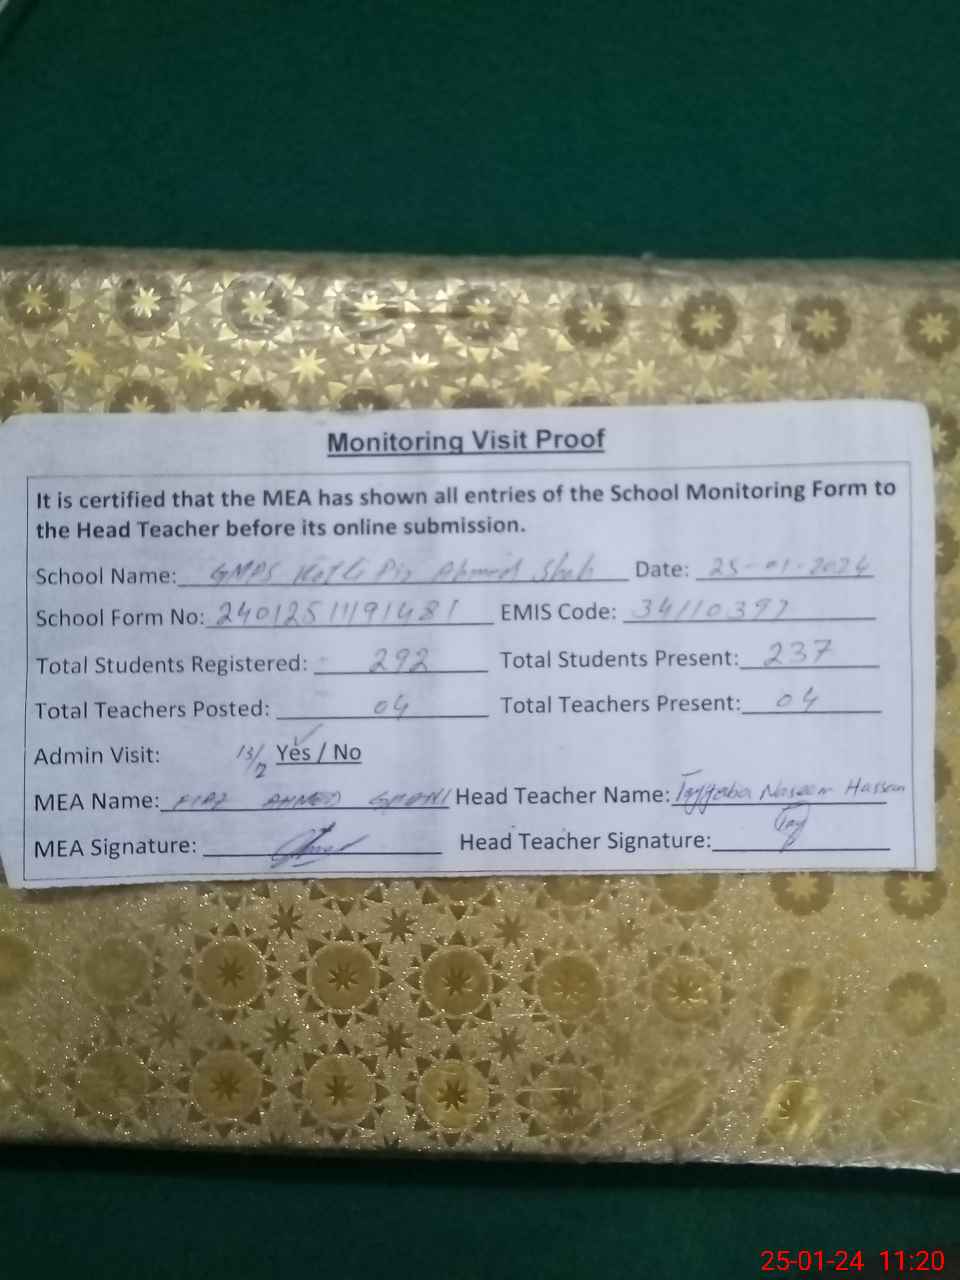 Monitoring Visit Proof
It is certified that the MEA has shown all entries of the School Monitoring Form to
the Head Teacher before its online submission.
School Name: GMPS Kotli Pir Ahmed Shah Date: 25-01-2024
School Form No: 240125111191481 EMIS Code: 34110397
Total Students Registered: 292 Total Students Present: 237
Total Teachers Posted: 04 Total Teachers Present: 04
Admin Visit: 13/2 Yes / No
MEA Name: AHMED Head Teacher Name: Tayyaba Naseem Hassan
MEA Signature: Head Teacher Signature:
25-01-24 11:20